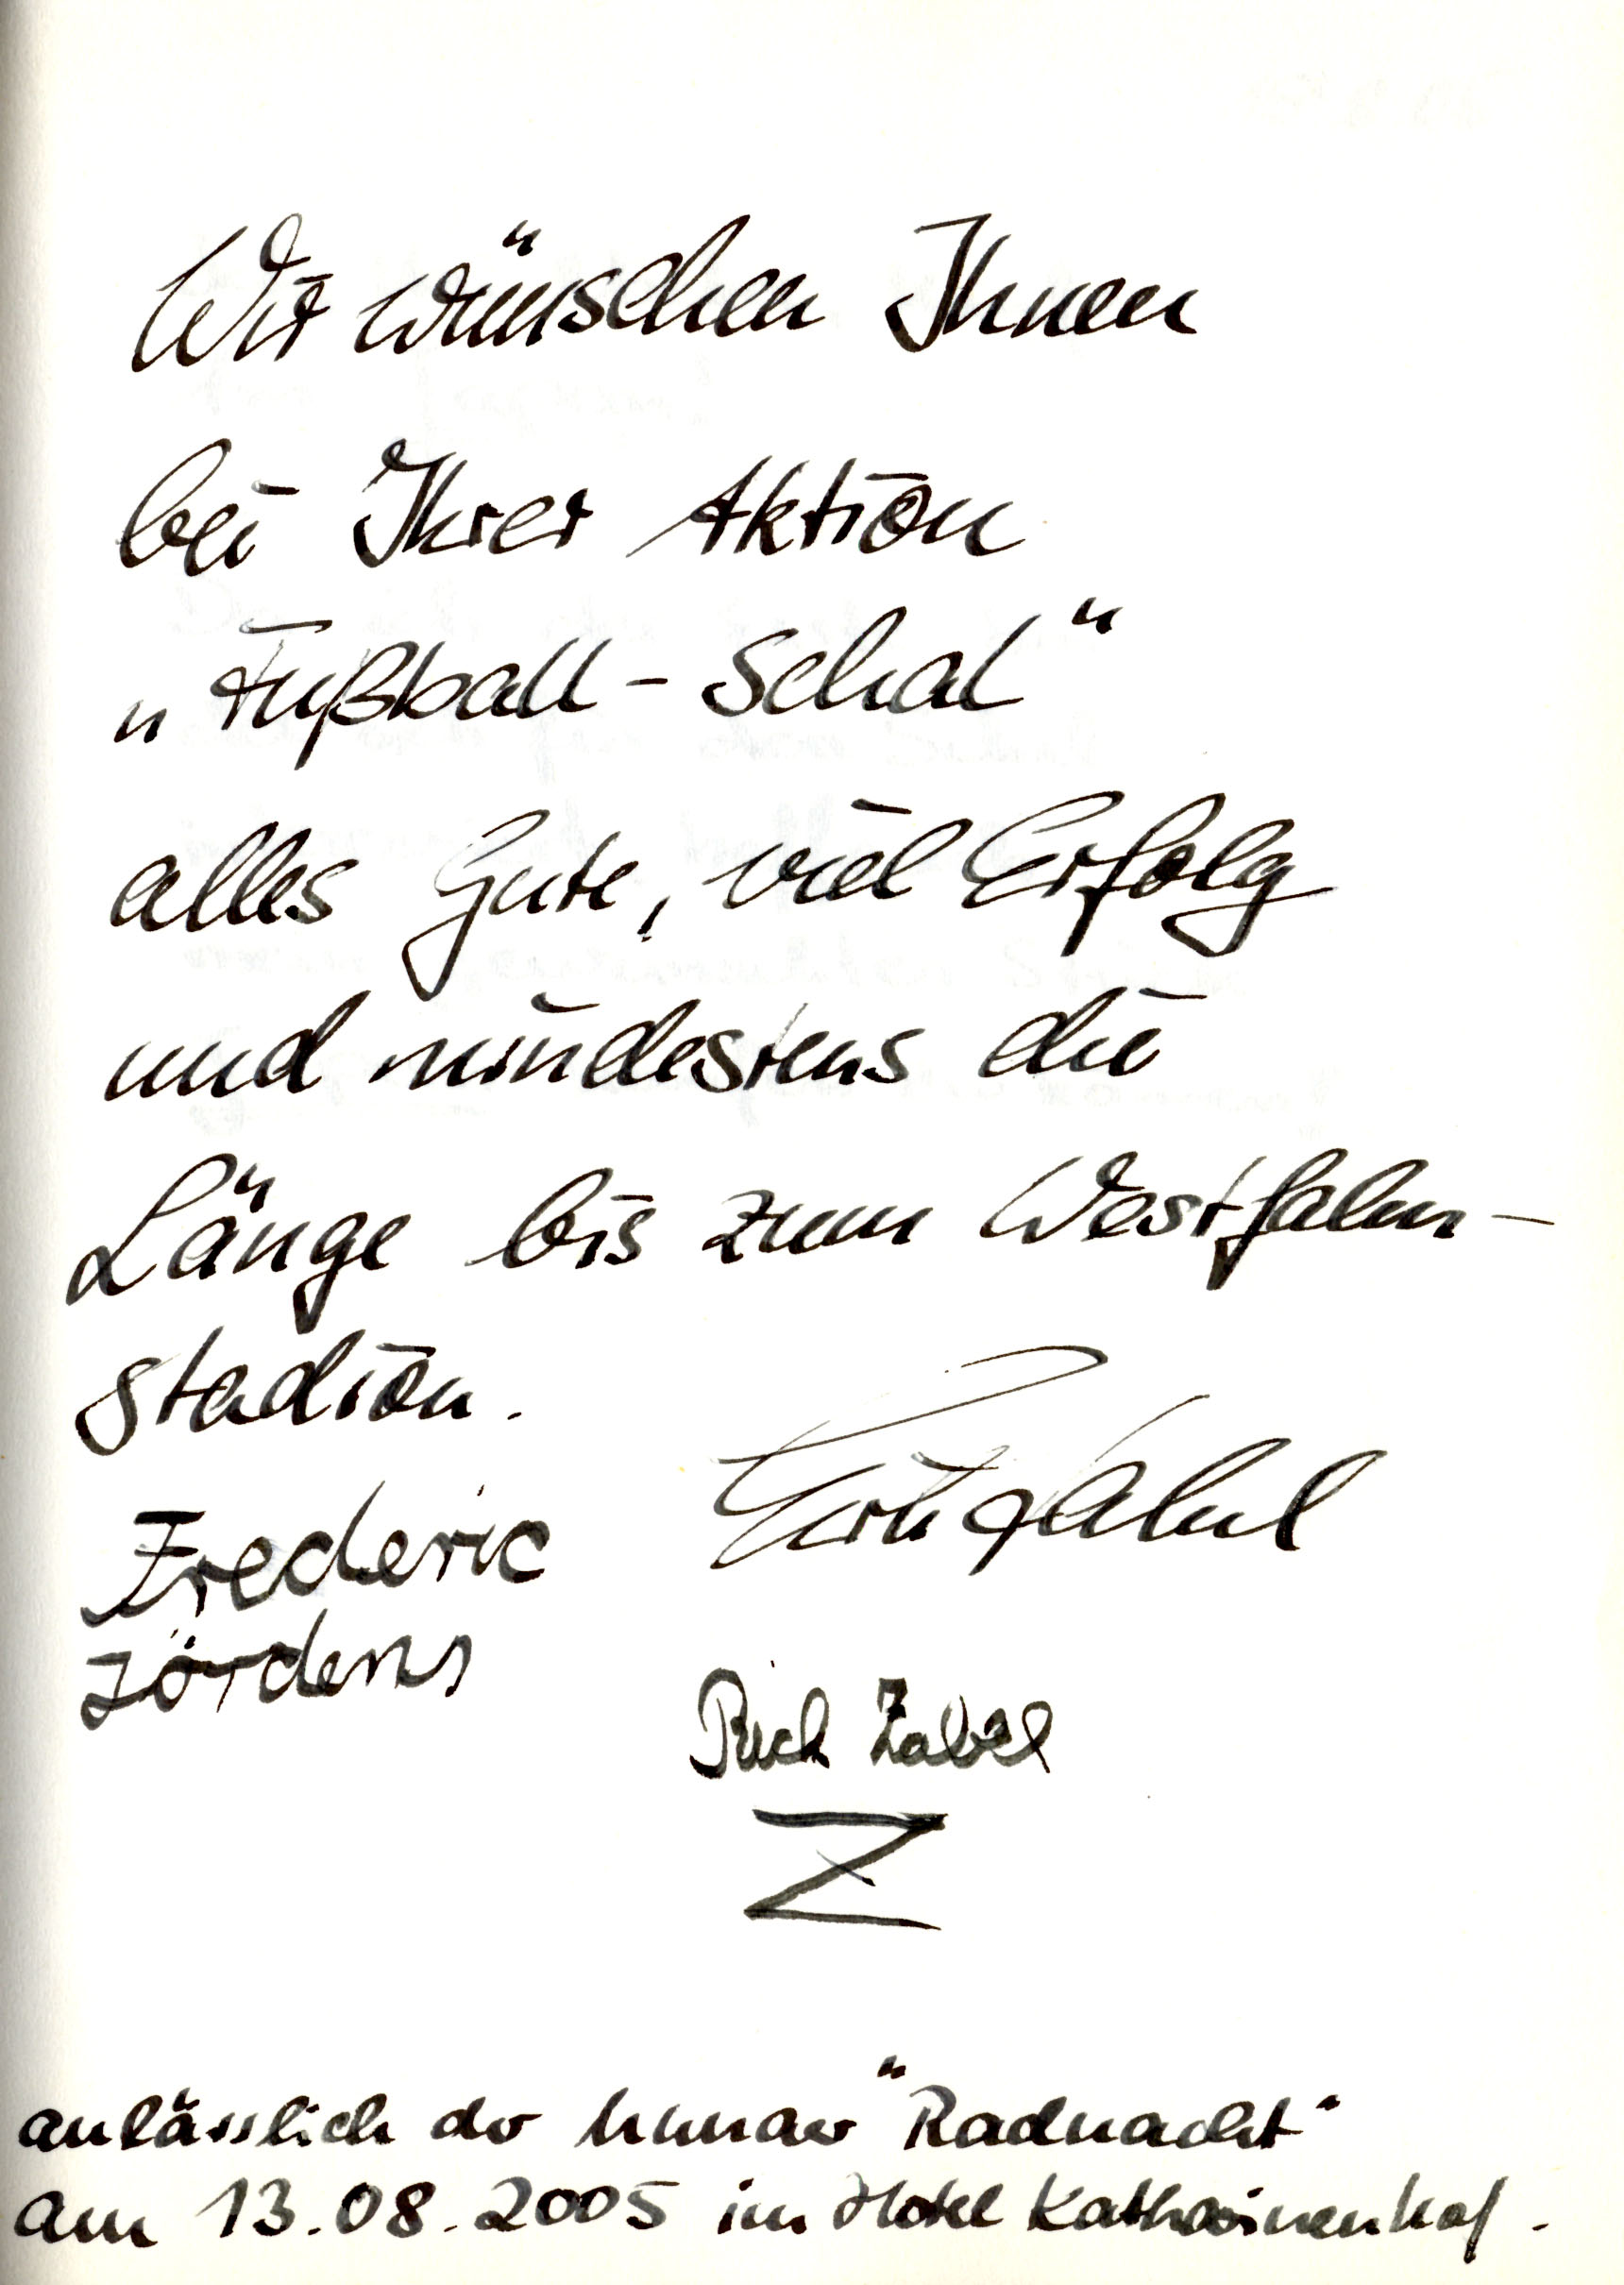 Wir wünschen Ihnen
bei Ihrer Aktion
„Fußball-Schal“
alles Gute, viel Erfolg
und mindestens die
Länge bis zum Westfalen-
stadion.
Erik Zabel
Frederic
Jördens
Rick Zabel
Z
anlässlich der Unnaer "Radnacht"
am 13.08.2005 im Hotel Katharinenhof.